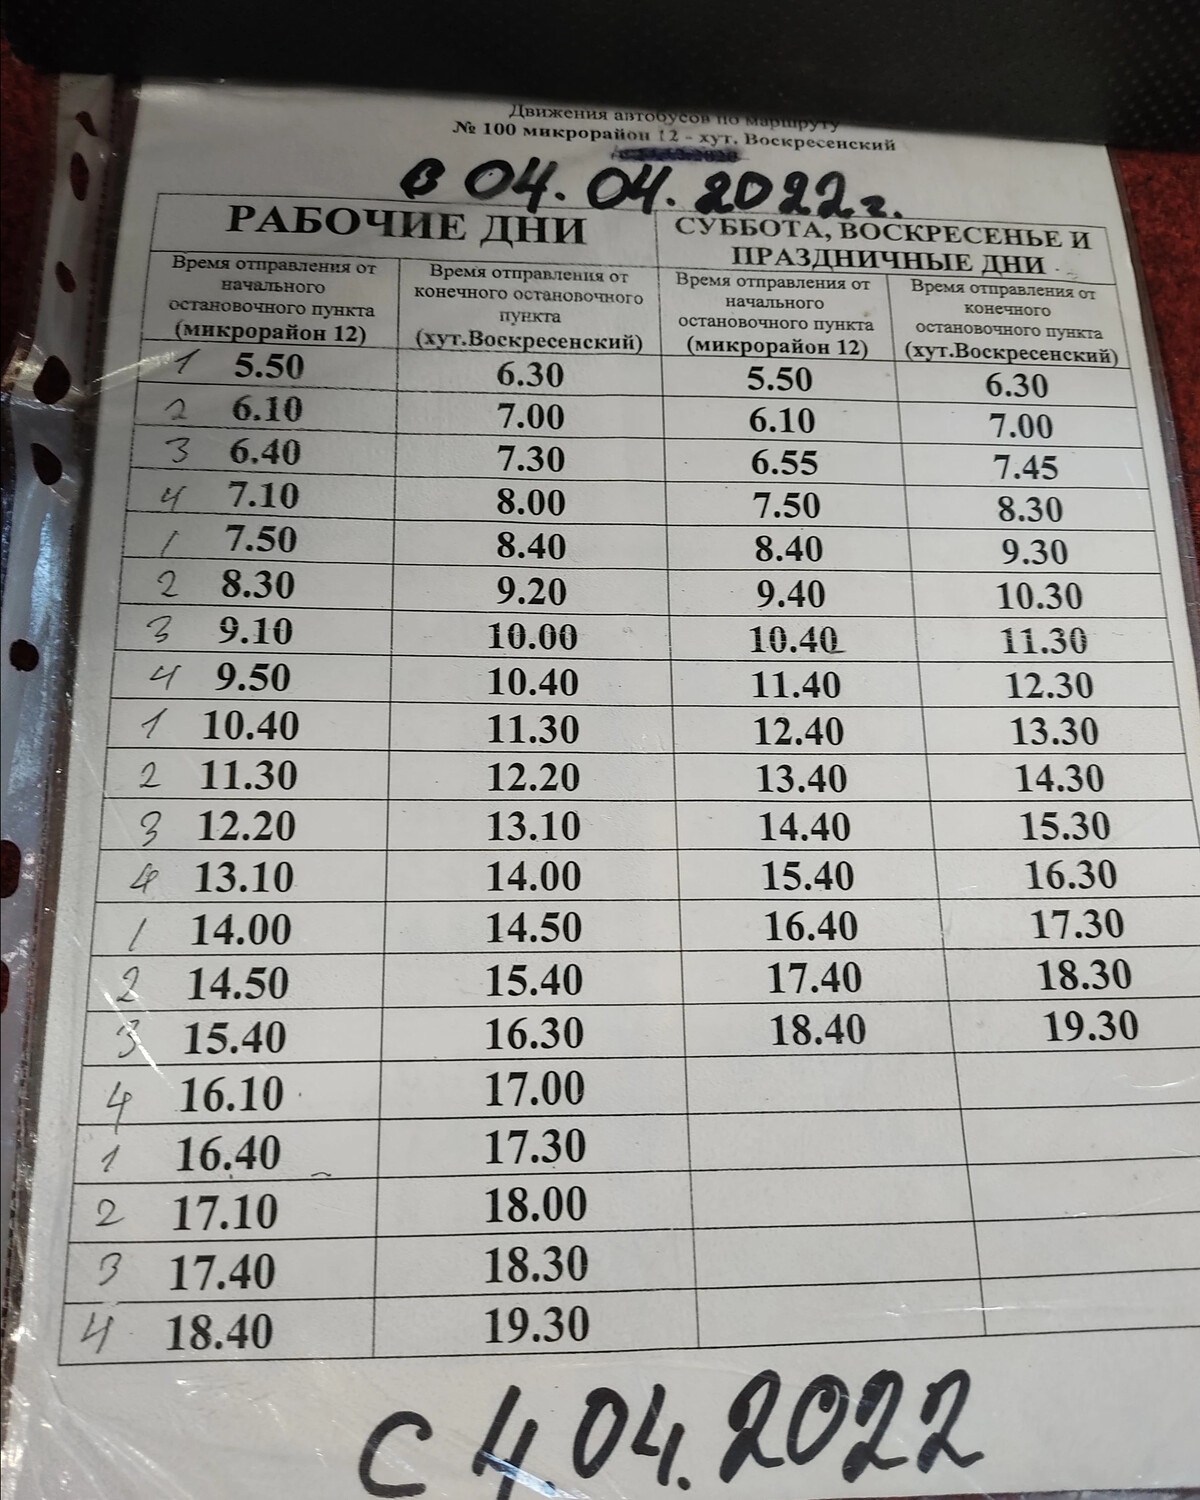 Движения автобусов по маршруту
№ 100 микрорайон 12 - хут. Воскресенский
в 04.04.2022г.
РАБОЧИЕ ДНИ СУББОТА, ВОСКРЕСЕНЬЕ И
ПРАЗДНИЧНЫЕ ДНИ
Время отправления от
начального
остановочного пункта
(микрорайон 12)
Время отправления от
конечного остановочного
пункта
(хут.Воскресенский)
Время отправления от
начального
остановочного пункта
(микрорайон 12)
Время отправления от
конечного
остановочного пункта
(хут.Воскресенский)
1 5.50 6.30 5.50 6.30
2 6.10 7.00 6.10 7.00
3 6.40 7.30 6.55 7.45
4 7.10 8.00 7.50 8.30
1 7.50 8.40 8.40 9.30
2 8.30 9.20 9.40 10.30
3 9.10 10.00 10.40 11.30
4 9.50 10.40 11.40 12.30
1 10.40 11.30 12.40 13.30
2 11.30 12.20 13.40 14.30
3 12.20 13.10 14.40 15.30
4 13.10 14.00 15.40 16.30
1 14.00 14.50 16.40 17.30
2 14.50 15.40 17.40 18.30
3 15.40 16.30 18.40 19.30
4 16.10 17.00
1 16.40 17.30
2 17.10 18.00
3 17.40 18.30
4 18.40 19.30
с 4.04.2022